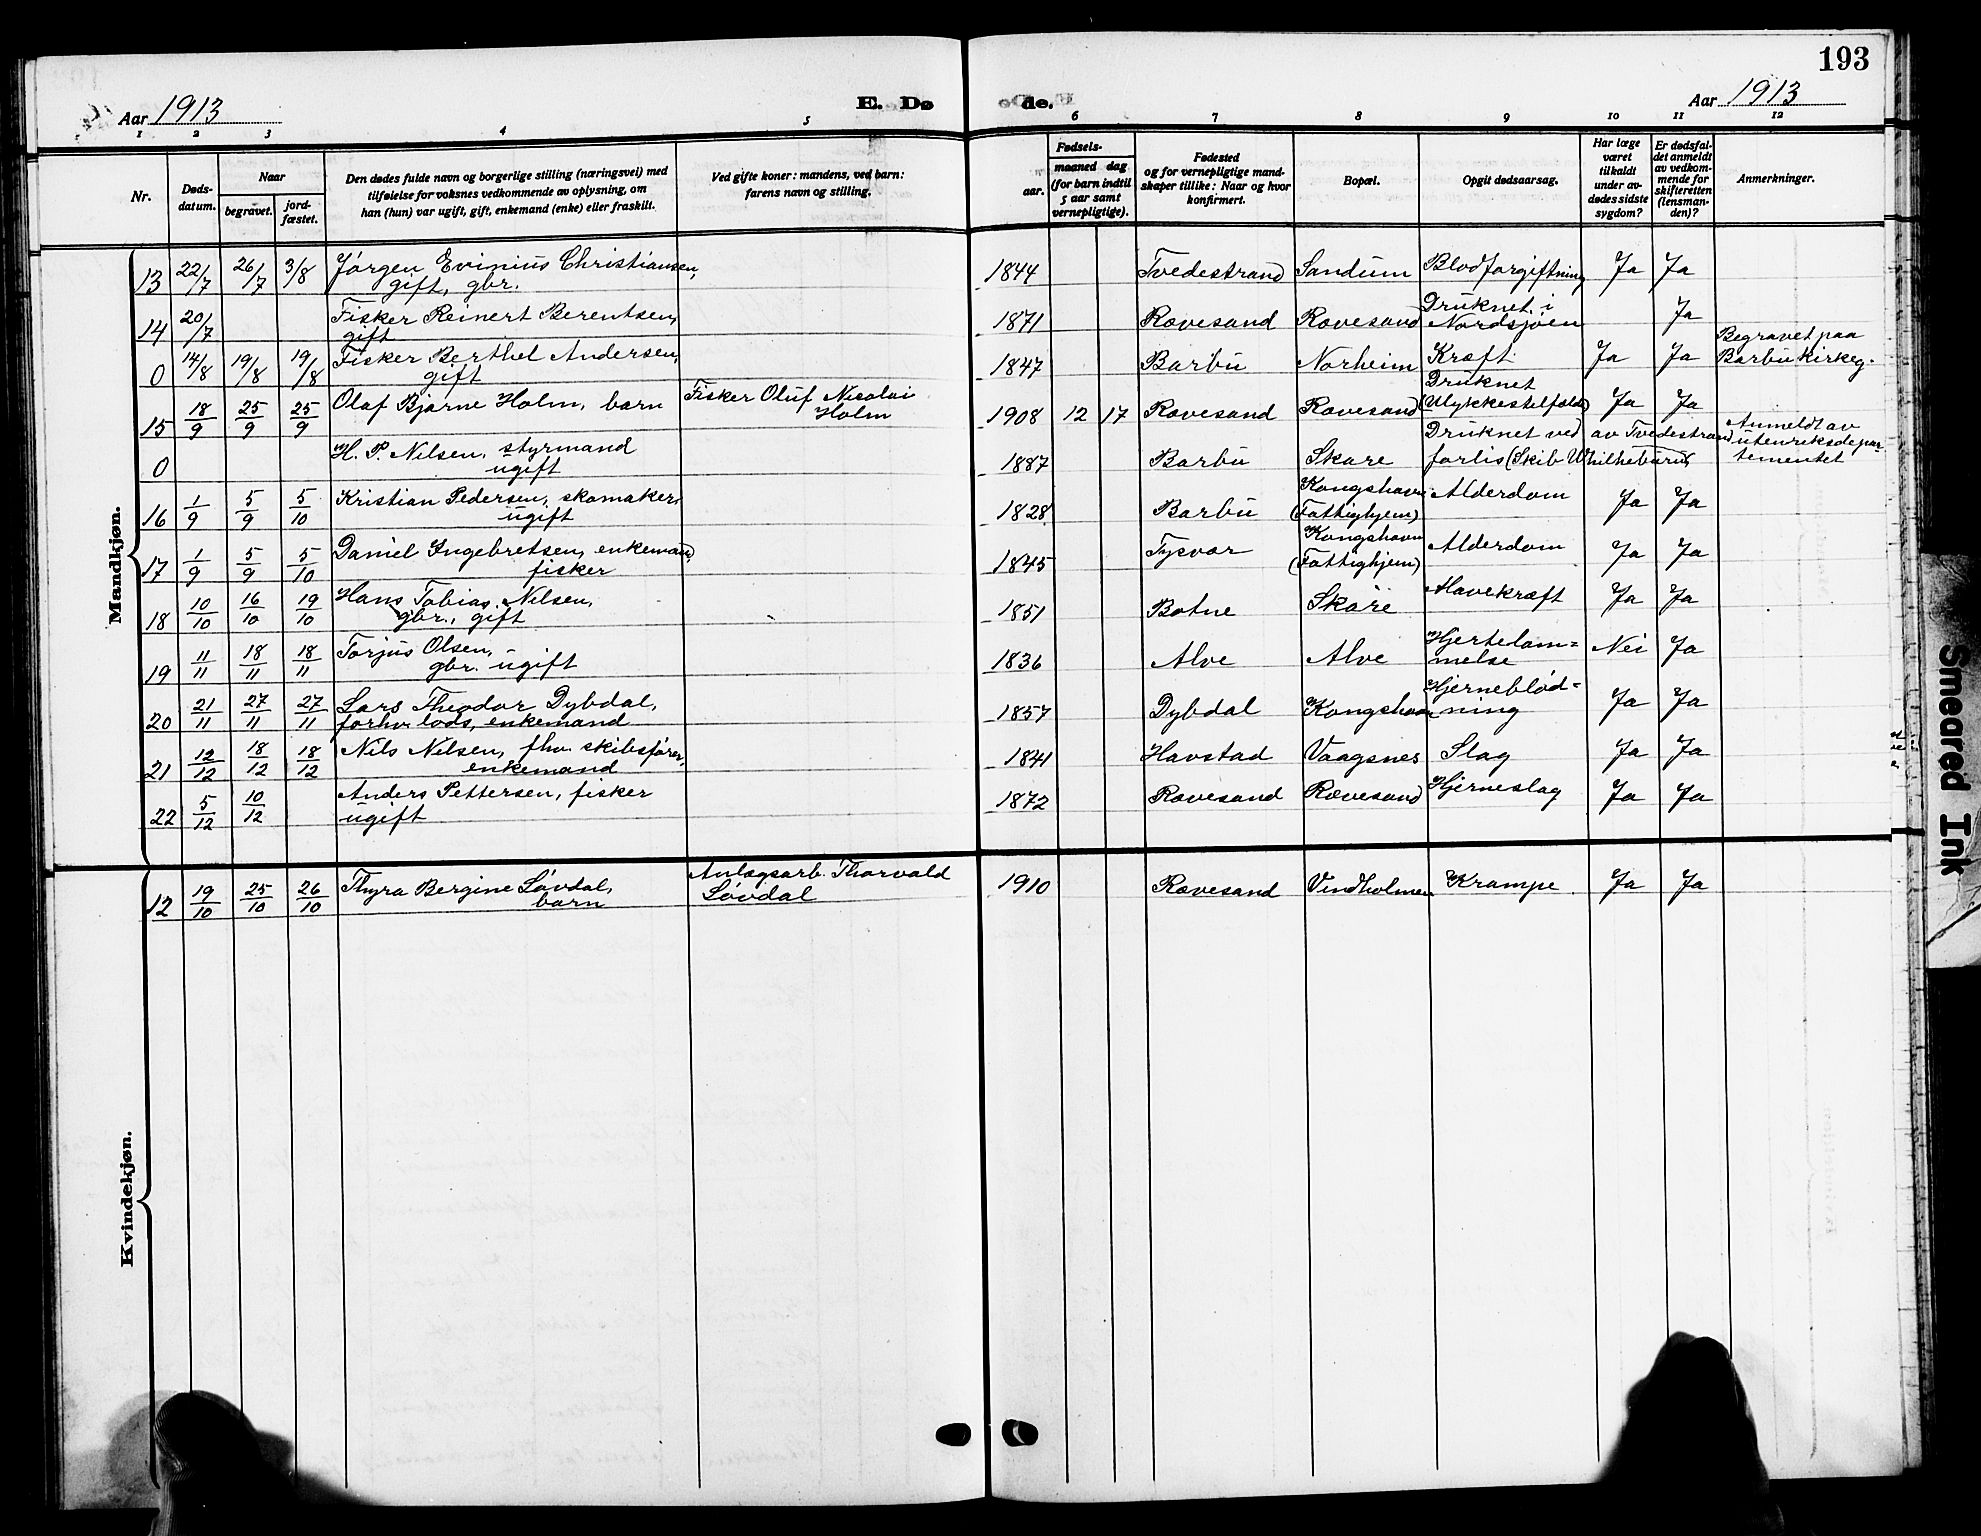 193
Aar 1913
E. Døde.
Aar 1913
1 2 3 4 5 6 7 8 9 10 11 12
Nr.
Dødsdatum.
Naar
begravet.
jordfæstet.
Den dødes fulde navn og borgerlige stilling (næringsvei) med
tilføielse for voksnes vedkommende av oplysning, om
han (hun) var ugift, gift, enkemand (enke) eller fraskilt.
Ved gifte koner: mandens, ved barn:
farens navn og stilling.
Fødsels-
aar.
maaned dag
(for barn indtil
5 aar samt
vernepligtige).
Fødested
og for vernepligtige mand-
skaper tillike: Naar og hvor
konfirmert.
Bopæl.
Opgit dødsaarsag.
Har læge
været
tilkaldt
under av-
dødes sidste
sygdom?
Er dødsfal-
det anmeldt
av vedkom-
mende for
skifteretten
(lensman-
den)?
Anmerkninger.
Mandkjøn.
13 22/7 26/7 3/8 Jørgen Evinius Christiansen, 1844 Tvedestrand Sandum Blodforgiftning Ja Ja
gift, gbr.
14 20/7 Fisker Reinert Berentsen, 1871 Rævesand Rævesand Druknet i Ja
gift Nordsjøen
0 14/8 19/8 19/8 Fisker Berthel Andersen, 1847 Barbu Norheim Kræft Ja Ja Begravet paa
gift Barbu kirkeg.
15 18/9 25/9 25/9 Olaf Bjarne Holm, barn Fisker Oluf Nicolai 1908 12 17 Rævesand Rævesand Druknet Ja Ja
Holm (Ulykkestilfælde)
0 H. P. Nilsen, styrmand 1887 Barbu Skare Druknet ved av Tvedestrand Anmeldt av
ugift forlis (Skib utenriksdepar-
tementet
16 1/9 5/9 5/10 Kristian Pedersen, skomaker, 1828 Barbu Kongshavn Alderdom Ja Ja
ugift (Fattighjem)
17 1/9 5/9 5/10 Daniel Ingebretsen, enkemand, 1845 Tysvær Kongshavn Alderdom Ja Ja
fisker (Fattighjem)
18 10/10 16/10 19/10 Hans Tobias Nilsen, 1851 Botne Skare Mavekræft Ja Ja
gbr., gift
19 11/11 18/11 18/11 Torjus Olsen, 1836 Alve Alve Hjertelam= Nei Ja
gbr. ugift melse
20 21/11 27/11 27/11 Lars Theodor Dybdal, 1857 Dybdal Kongshavn Hjerneblød= Ja Ja
forhv. lods, enkemand ning
21 12/12 18/12 18/12 Nils Nilsen, fhv. skibsfører, 1841 Havstad Vaagsnes Slag Ja Ja
enkemand
22 5/12 10/12 Anders Pettersen, fisker 1872 Rævesand Rævesand Hjerneslag Ja Ja
ugift
Kvindekjøn.
12 19/10 25/10 26/10 Thyra Bergine Løvdal, Anlægsarb. Thorvald 1910 Rævesand Vindholmen Krampe Ja Ja
barn Løvdal
Smeared Ink